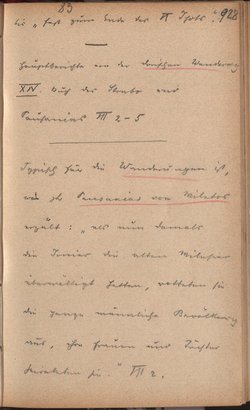 23
bis "fast zum Ende des II Jhots". 928
Hauptberichte von der dorischen Wanderung
XIV. Buch des Strabo und
Pausanias VII 2-5
Typisch für die Wanderungen ist,
was Pausanias von Miletos
erzählt: "als nun damals
die Jonier die alten Milesier
überwältigt hatten, rotteten sie
die ganze männliche Bevölkerung
aus, ihre Frauen und Töchter
heirateten sie." VII 2.